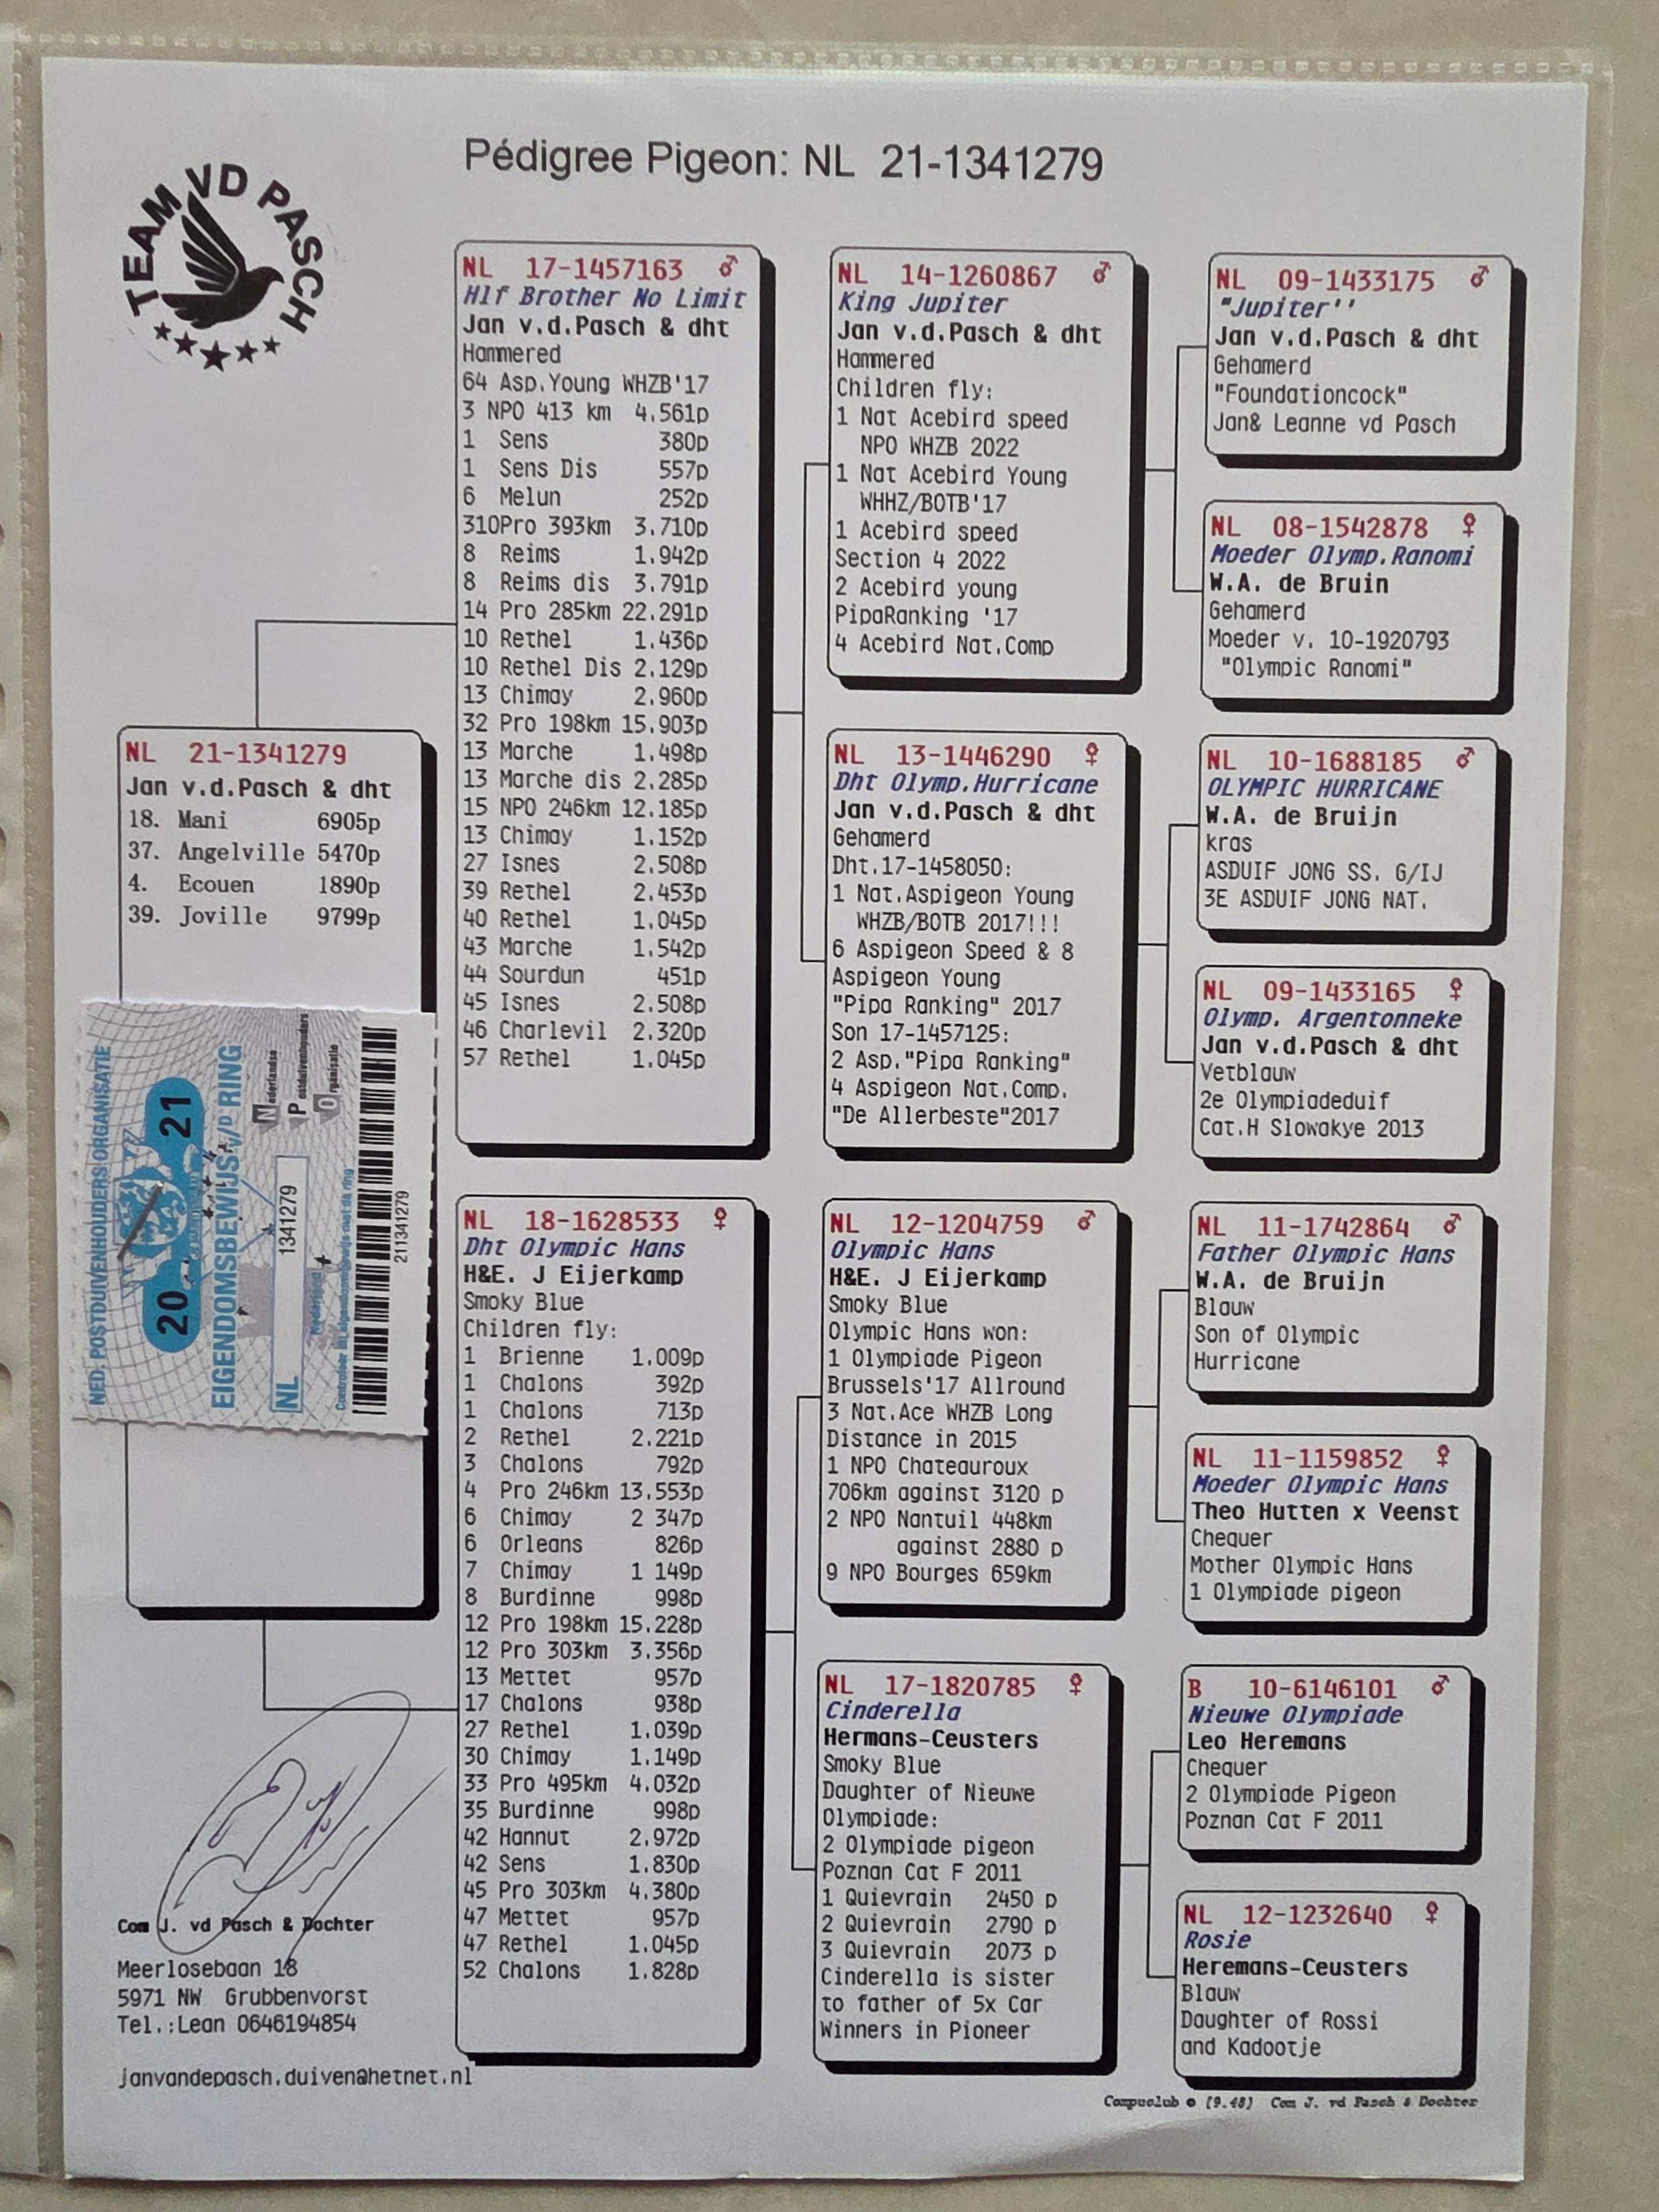 Pédigree Pigeon: NL 21-1341279
TEAM VD PASCH
NL 21-1341279
Jan v.d.Pasch & dht
18. Mani 6905p
37. Angelville 5470p
4. Ecouen 1890p
39. Joville 9799p
NED. POSTDUIVENHOUDERS ORGANISATIE
20 21
EIGENDOMSBEWIJS v/D RING
Nederlandse
Postduivenhouders
Organisatie
NL 1341279
Nederland
211341279
NL 17-1457163 ♂
Hlf Brother No Limit
Jan v.d.Pasch & dht
Hammered
64 Asp.Young WHZB'17
3 NPO 413 km 4.561p
1 Sens 380p
1 Sens Dis 557p
6 Melun 252p
310Pro 393km 3.710p
8 Reims 1.942p
8 Reims dis 3.791p
14 Pro 285km 22.291p
10 Rethel 1.436p
10 Rethel Dis 2.129p
13 Chimay 2.960p
32 Pro 198km 15.903p
13 Marche 1.498p
13 Marche dis 2.285p
15 NPO 246km 12.185p
13 Chimay 1.152p
27 Isnes 2.508p
39 Rethel 2.453p
40 Rethel 1.045p
43 Marche 1.542p
44 Sourdun 451p
45 Isnes 2.508p
46 Charlevil 2.320p
57 Rethel 1.045p
NL 18-1628533 ♀
Dht Olympic Hans
H&E. J Eijerkamp
Smoky Blue
Children fly:
1 Brienne 1.009p
1 Chalons 392p
1 Chalons 713p
2 Rethel 2.221p
3 Chalons 792p
4 Pro 246km 13.553p
6 Chimay 2 347p
6 Orleans 826p
7 Chimay 1 149p
8 Burdinne 998p
12 Pro 198km 15.228p
12 Pro 303km 3.356p
13 Mettet 957p
17 Chalons 938p
27 Rethel 1.039p
30 Chimay 1.149p
33 Pro 495km 4.032p
35 Burdinne 998p
42 Hannut 2.972p
42 Sens 1.830p
45 Pro 303km 4.380p
47 Mettet 957p
47 Rethel 1.045p
52 Chalons 1.828p
NL 14-1260867 ♂
King Jupiter
Jan v.d.Pasch & dht
Hammered
Children fly:
1 Nat Acebird speed
NPO WHZB 2022
1 Nat Acebird Young
WHHZ/BOTB'17
1 Acebird speed
Section 4 2022
2 Acebird young
PipaRanking '17
4 Acebird Nat.Comp
NL 13-1446290 ♀
Dht Olymp.Hurricane
Jan v.d.Pasch & dht
Gehamerd
Dht.17-1458050:
1 Nat.Aspigeon Young
WHZB/BOTB 2017!!!
6 Aspigeon Speed & 8
Aspigeon Young
"Pipa Ranking" 2017
Son 17-1457125:
2 Asp."Pipa Ranking"
4 Aspigeon Nat.Comp.
"De Allerbeste"2017
NL 12-1204759 ♂
Olympic Hans
H&E. J Eijerkamp
Smoky Blue
Olympic Hans won:
1 Olympiade Pigeon
Brussels'17 Allround
3 Nat.Ace WHZB Long
Distance in 2015
1 NPO Chateauroux
706km against 3120 p
2 NPO Nantuil 448km
against 2880 p
9 NPO Bourges 659km
NL 17-1820785 ♀
Cinderella
Hermans-Ceusters
Smoky Blue
Daughter of Nieuwe
Olympiade:
2 Olympiade pigeon
Poznan Cat F 2011
1 Quievrain 2450 p
2 Quievrain 2790 p
3 Quievrain 2073 p
Cinderella is sister
to father of 5x Car
Winners in Pioneer
NL 09-1433175 ♂
"Jupiter''
Jan v.d.Pasch & dht
Gehamerd
"Foundationcock"
Jan& Leanne vd Pasch
NL 08-1542878 ♀
Moeder Olymp.Ranomi
W.A. de Bruin
Gehamerd
Moeder v. 10-1920793
"Olympic Ranomi"
NL 10-1688185 ♂
OLYMPIC HURRICANE
W.A. de Bruijn
kras
ASDUIF JONG SS. G/IJ
3E ASDUIF JONG NAT.
NL 09-1433165 ♀
Olymp. Argentonneke
Jan v.d.Pasch & dht
Vetblauw
2e Olympiadeduif
Cat.H Slowakye 2013
NL 11-1742864 ♂
Father Olympic Hans
W.A. de Bruijn
Blauw
Son of Olympic
Hurricane
NL 11-1159852 ♀
Moeder Olympic Hans
Theo Hutten x Veenst
Chequer
Mother Olympic Hans
1 Olympiade pigeon
B 10-6146101 ♂
Nieuwe Olympiade
Leo Heremans
Chequer
2 Olympiade Pigeon
Poznan Cat F 2011
NL 12-1232640 ♀
Rosie
Heremans-Ceusters
Blauw
Daughter of Rossi
and Kadootje
Com J. vd Pasch & Dochter
Meerlosebaan 18
5971 NW Grubbenvorst
Tel.:Lean 0646194854
janvandepasch.duiven@hetnet.nl
Compuclub © [9.48] Com J. vd Pasch & Dochter